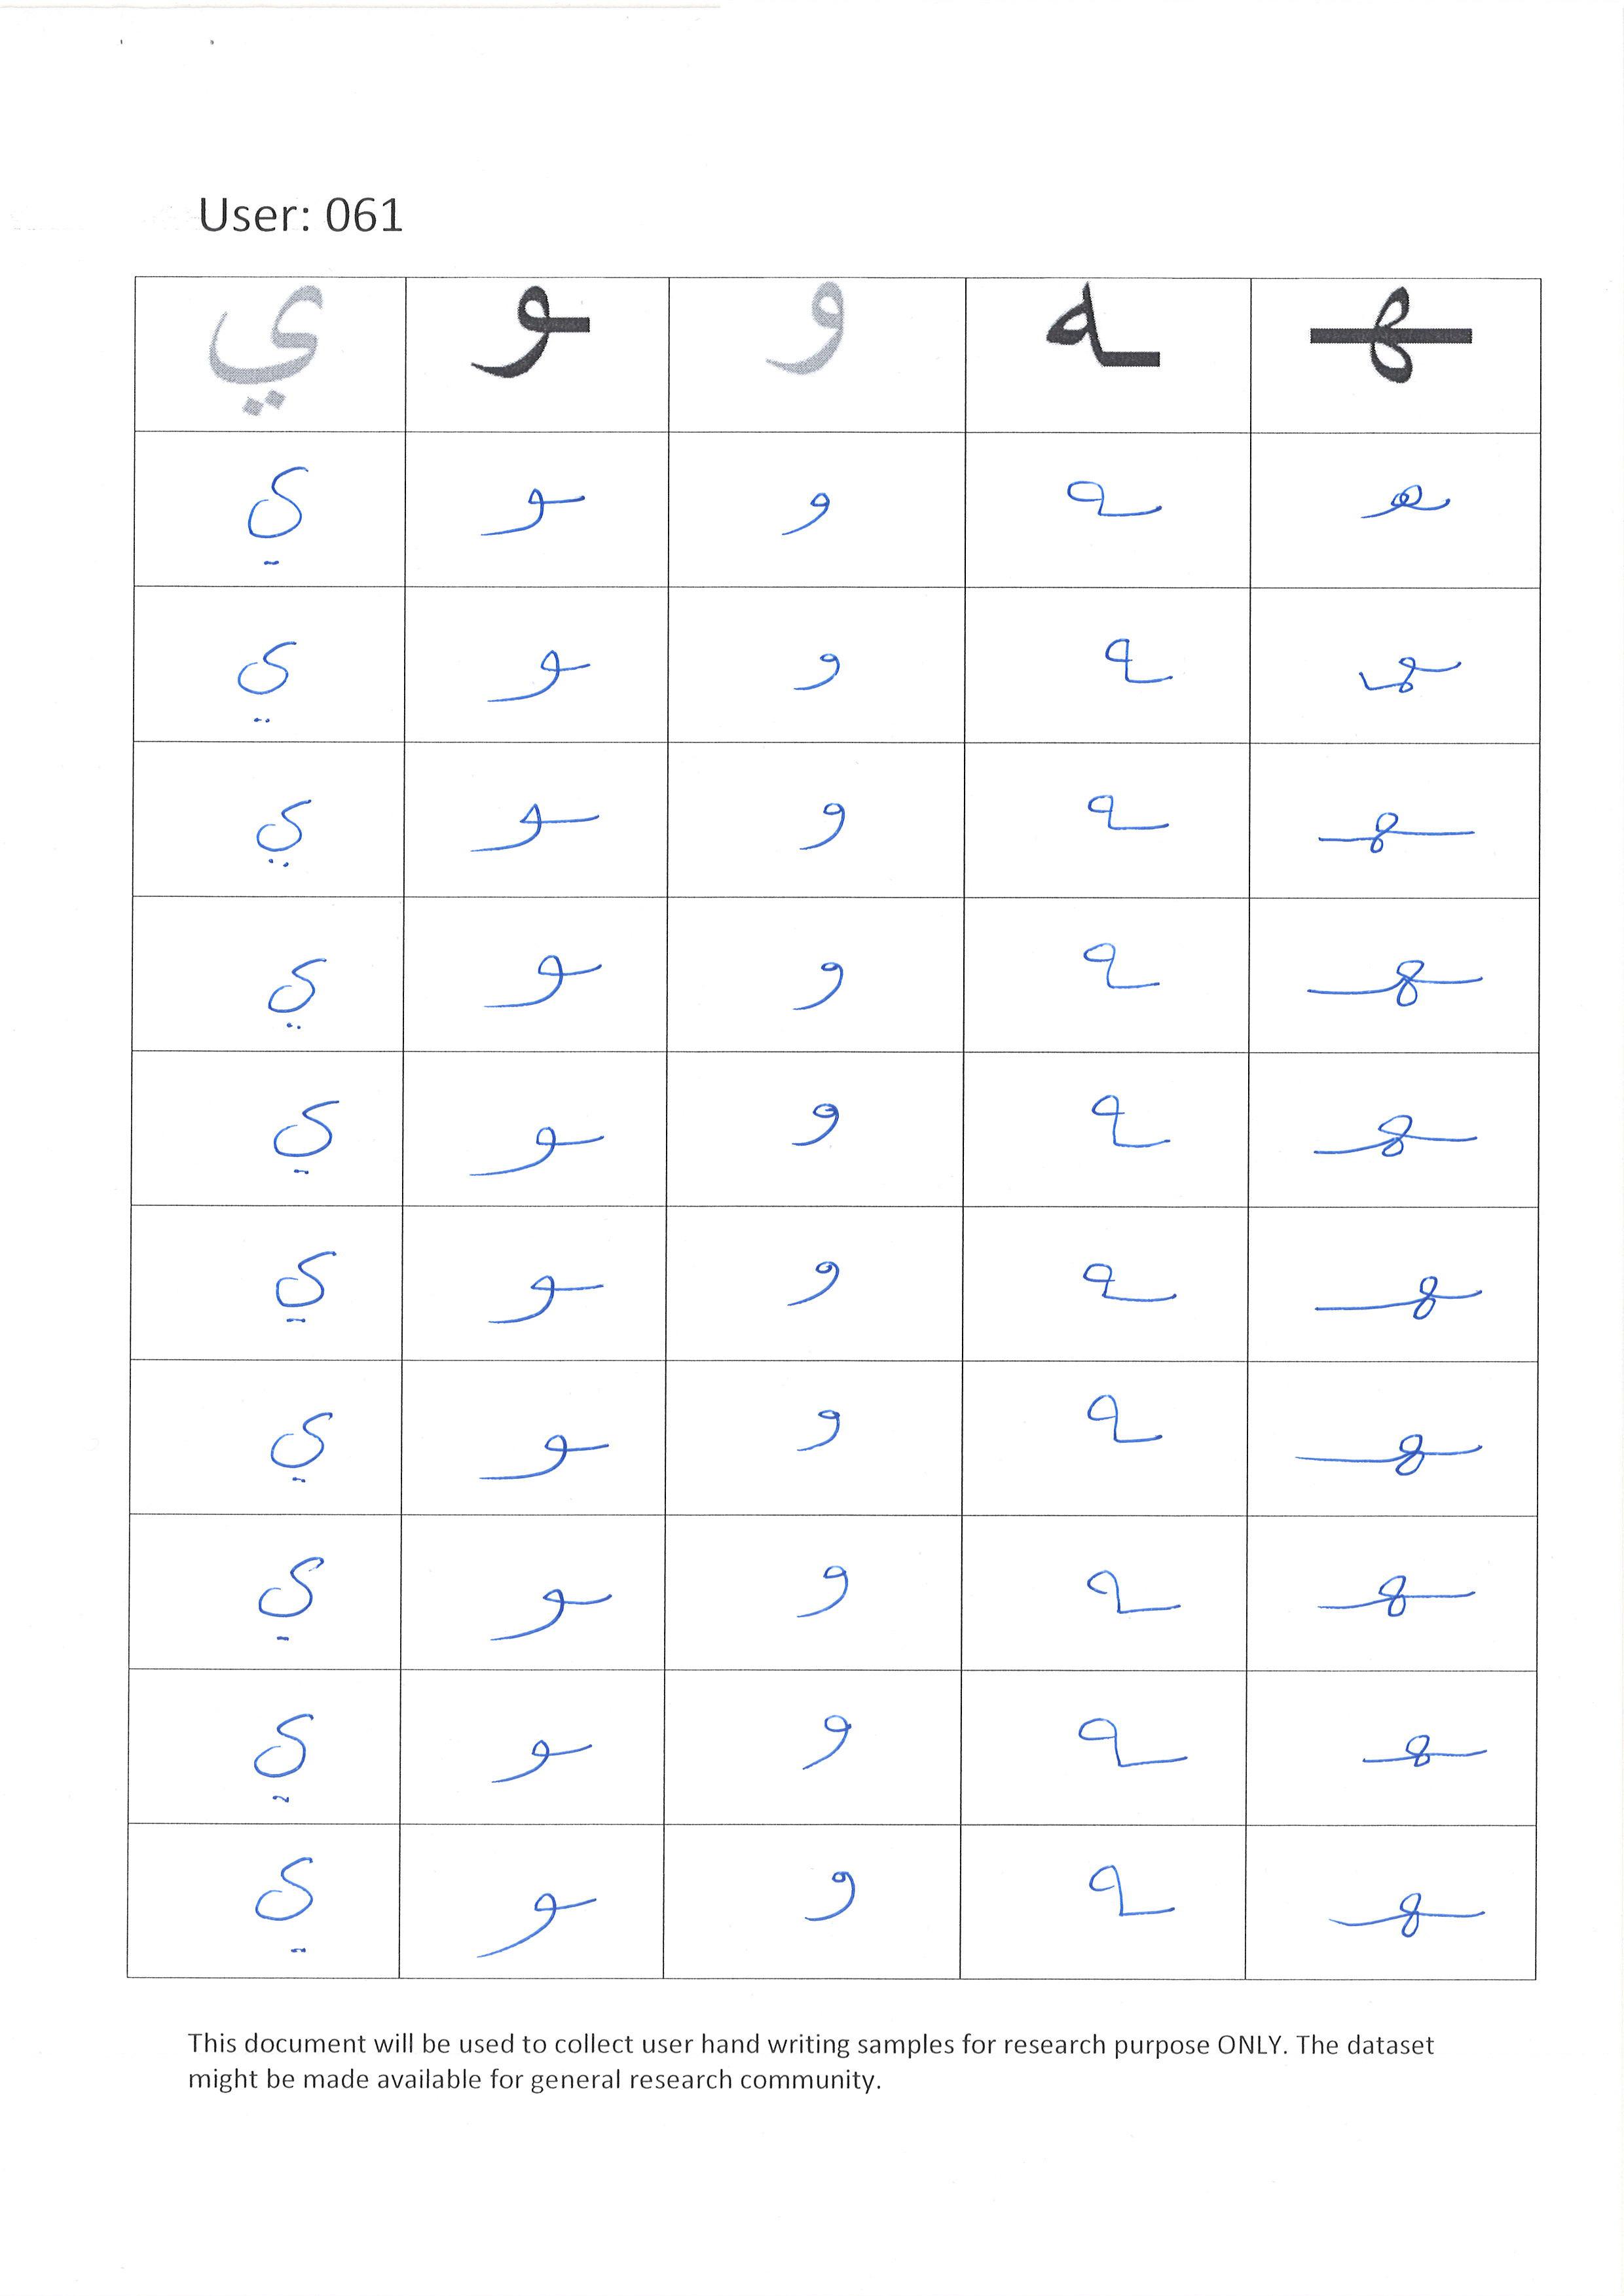 User: 061
ـهـ ـه و ـو ي
ـهـ ـه و ـو ي
ـهـ ـه و ـو ي
ـهـ ـه و ـو ي
ـهـ ـه و ـو ي
ـهـ ـه و ـو ي
ـهـ ـه و ـو ي
ـهـ ـه و ـو ي
ـهـ ـه و ـو ي
ـهـ ـه و ـو ي
ـهـ ـه و ـو ي
This document will be used to collect user hand writing samples for research purpose ONLY. The dataset
might be made available for general research community.